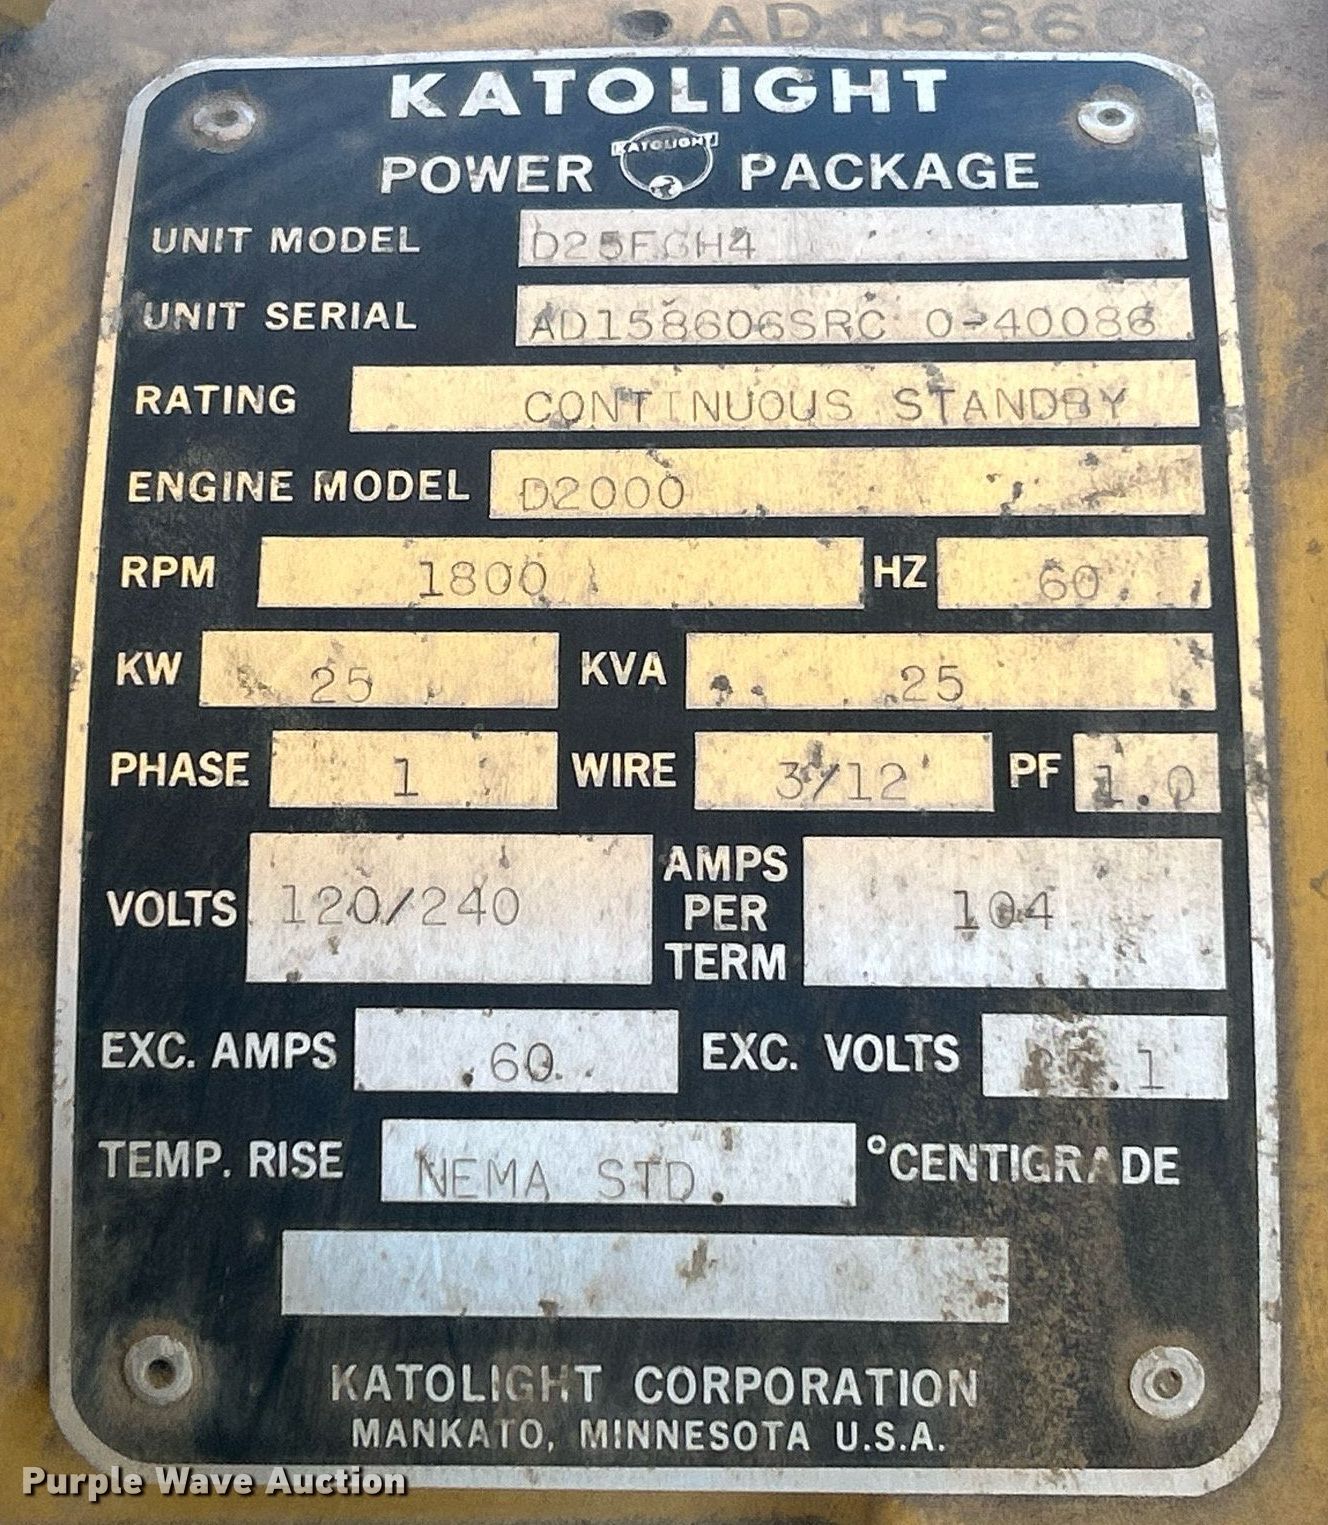 AD158605
KATOLIGHT
POWER KATOLIGHT PACKAGE
UNIT MODEL D25FGH4
UNIT SERIAL AD158606SRC 0-40086
RATING CONTINUOUS STANDBY
ENGINE MODEL D2000
RPM 1800 HZ 60
KW 25 KVA 25
PHASE 1 WIRE 3/12 PF 1.0
VOLTS 120/240 AMPS PER TERM 104
EXC. AMPS .60 EXC. VOLTS
TEMP. RISE NEMA STD. °CENTIGRADE
KATOLIGHT CORPORATION
MANKATO, MINNESOTA U.S.A.
Purple Wave Auction